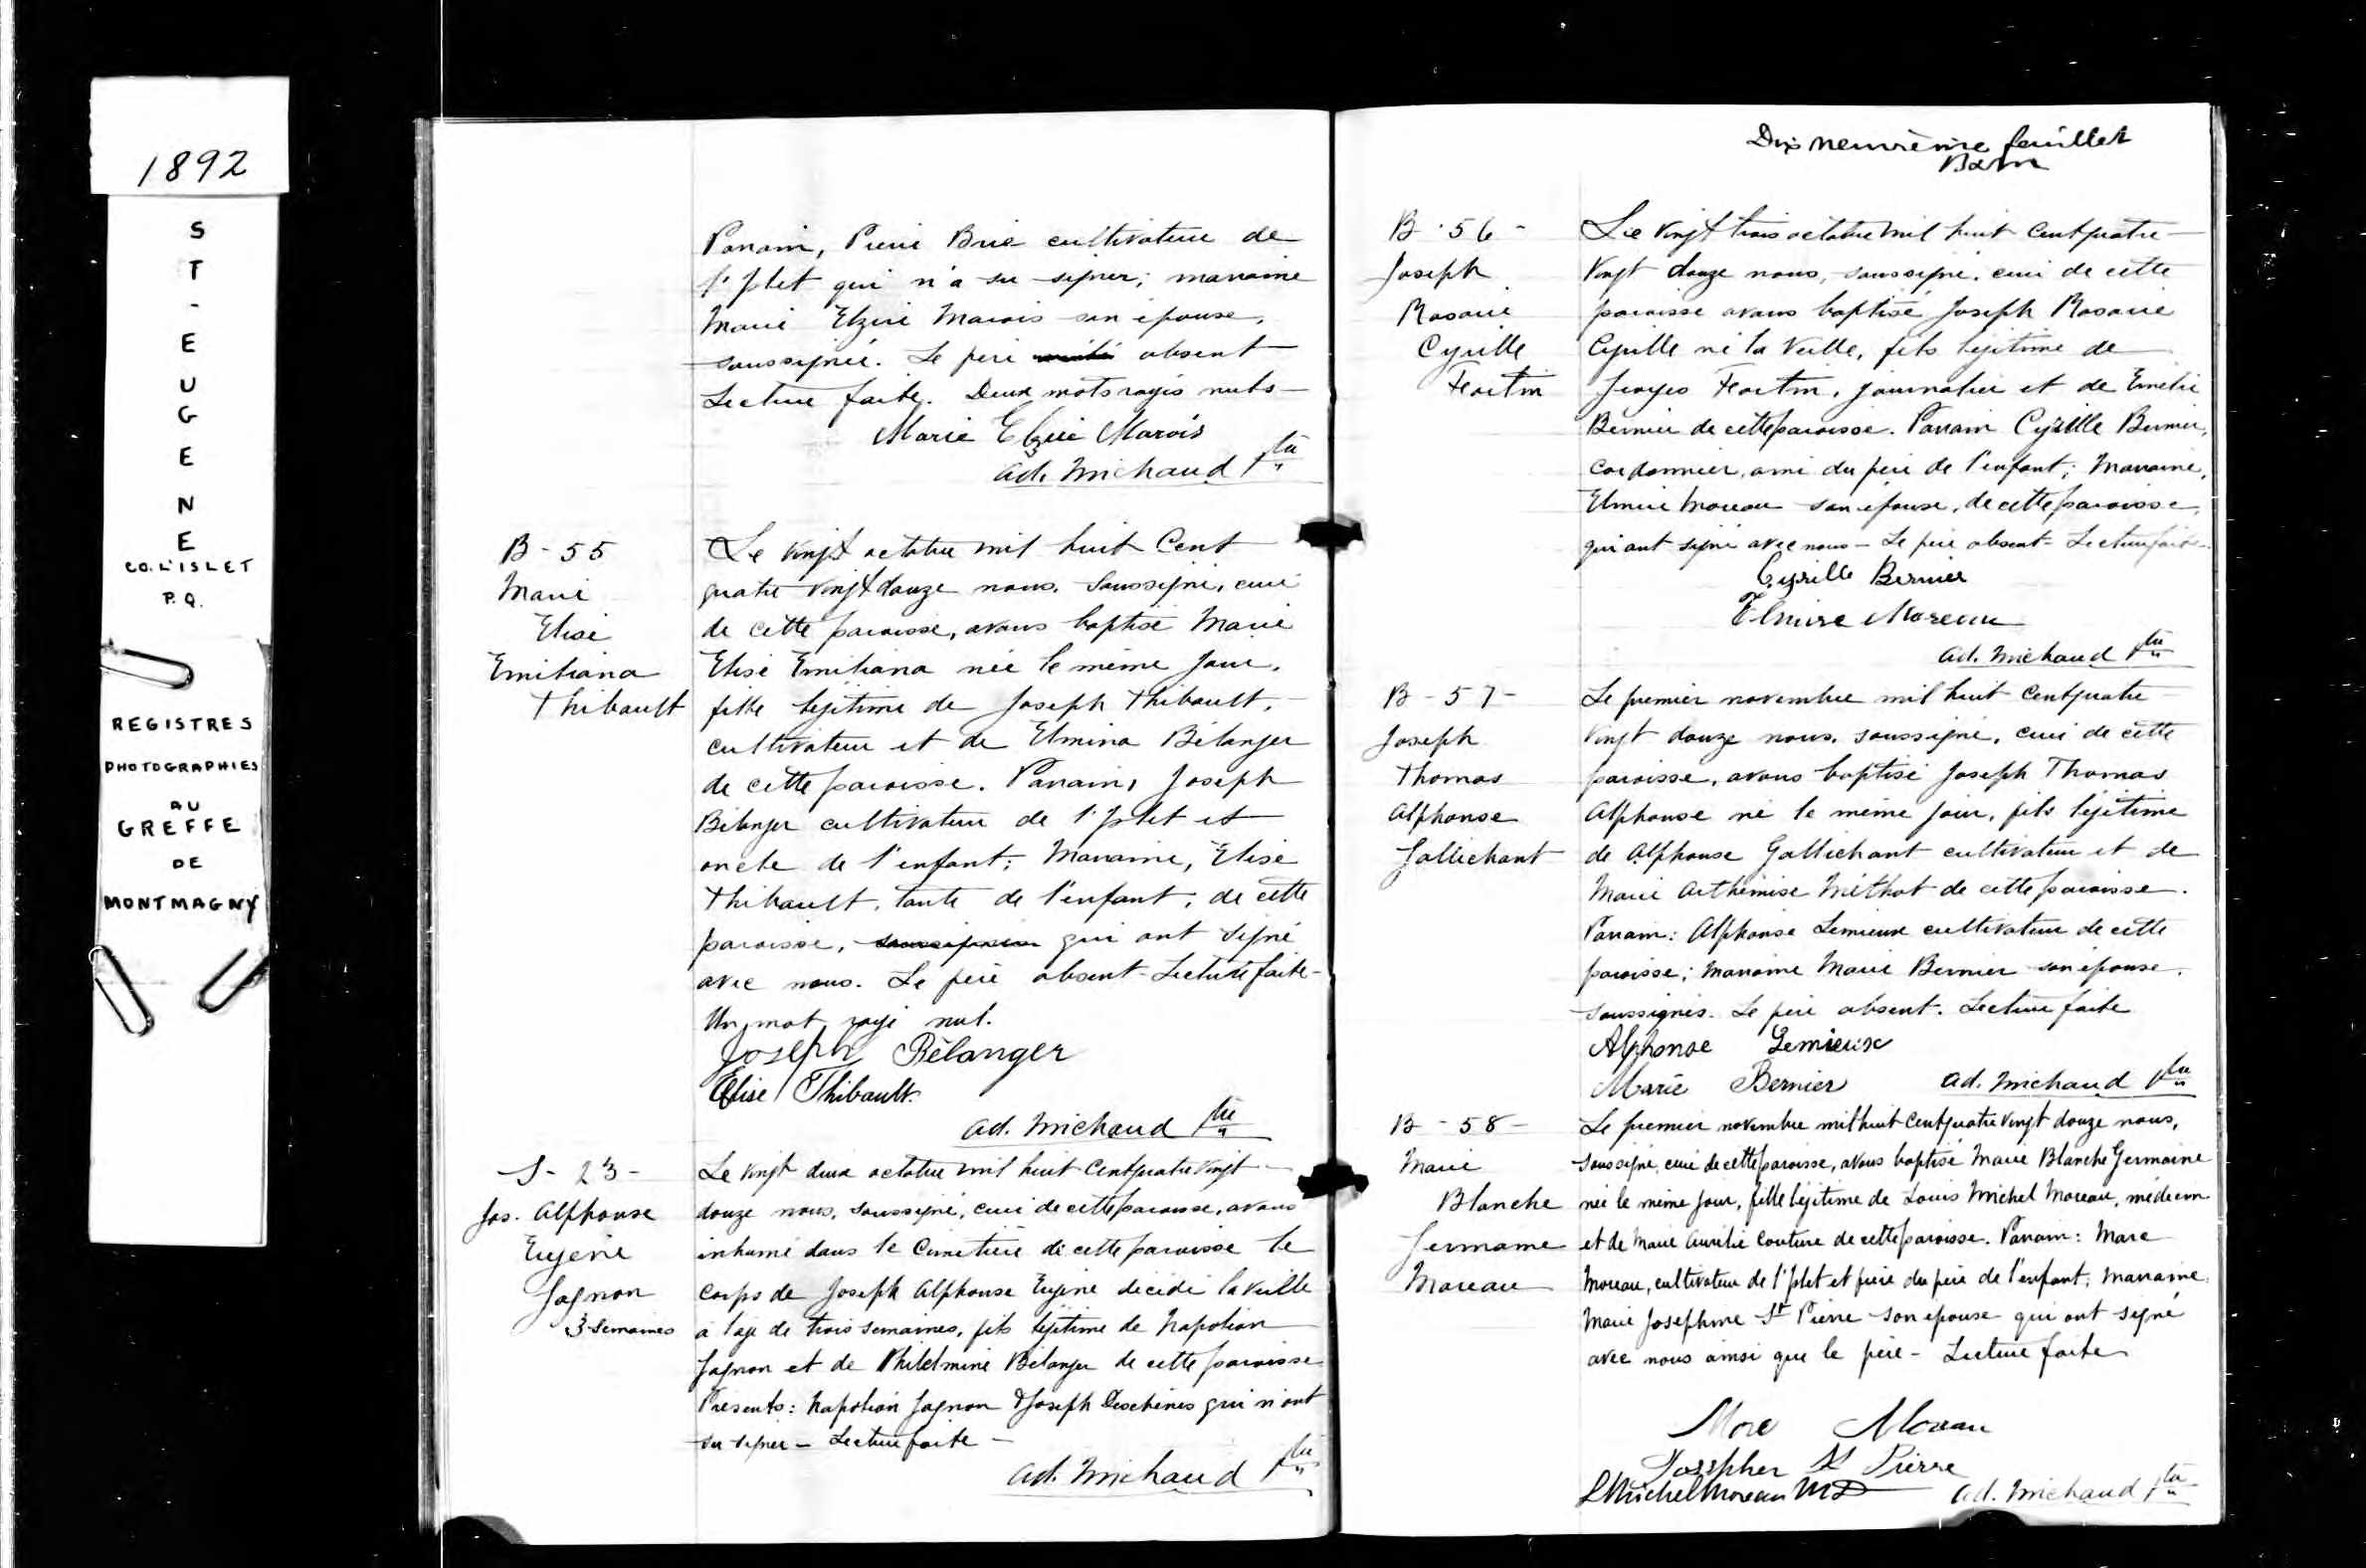 1892
ST-EUGENE
CO. L'ISLET
P.Q.
REGISTRES
PHOTOGRAPHIES
AU
GREFFE
DE
MONTMAGNY
Parrain, Pierre Brie cultivateur de
l'Islet qui n'a su signer; marraine
Marie Elzire Marois son épouse,
soussignée. Le père absent
Lecture faite. Deux mots rayés nuls -
Marie Elzire Marois
Ad. Michaud Ptre
B - 55
Marie
Elise
Emiliana
Thibault
Le vingt octobre mil huit cent
quatre vingt douze nous, soussigné, curé
de cette paroisse, avons baptisé Marie
Elise Emiliana née le même jour,
fille légitime de Joseph Thibault,
cultivateur et de Elmina Bélanger
de cette paroisse. Parrain, Joseph
Bélanger cultivateur de l'Islet et
oncle de l'enfant; Marraine, Elise
Thibault, tante de l'enfant, de cette
paroisse, qui ont signé
avec nous. Le père absent - Lecture faite -
Un mot rayé nul.
Joseph Bélanger
Elise Thibault
Ad. Michaud Ptre
S - 23 -
Jos. Alphonse
Eugène
Gagnon
3 semaines
Le vingt deux octobre mil huit cent quatre vingt
douze nous, soussigné, curé de cette paroisse, avons
inhumé dans le cimetière de cette paroisse le
corps de Joseph Alphonse Eugène décédé la veille
à l'age de trois semaines, fils légitime de Napoléon
Gagnon et de Philomine Bélanger de cette paroisse
Présents: Napoléon Gagnon & Joseph Deschènes qui n'ont
su signer - Lecture faite -
Ad. Michaud Ptre
Dix neuvième feuillet
B - 56 -
Joseph
Rosarie
Cyrille
Fortin
Le vingt trois octobre mil huit cent quatre
vingt douze nous, soussigné, curé de cette
paroisse avons baptisé Joseph Rosarie
Cyrille né la veille, fils légitime de
Georges Fortin, journalier et de Emélie
Bernier de cette paroisse. Parrain Cyrille Bernier,
cordonnier, ami du père de l'enfant; Marraine,
Elmire Moreau son épouse, de cette paroisse,
qui ont signé avec nous - Le père absent - Lecture faite -
Cyrille Bernier
Elmire Moreau
Ad. Michaud Ptre
B - 57 -
Joseph
Thomas
Alphonse
Gallichant
Le premier novembre mil huit cent quatre
vingt douze nous, soussigné, curé de cette
paroisse, avons baptisé Joseph Thomas
Alphonse né le même jour, fils légitime
de Alphonse Gallichant cultivateur et de
Marie Arthémise Méthot de cette paroisse.
Parrain: Alphonse Lemieux cultivateur de cette
paroisse; marraine Marie Bernier son épouse,
soussignés. Le père absent. Lecture faite
Alphonse Lemieux
Marie Bernier Ad. Michaud Ptre
B - 58 -
Marie
Blanche
Germaine
Moreau
Le premier novembre mil huit cent quatre vingt douze nous,
soussigné, curé de cette paroisse, avons baptisé Marie Blanche Germaine
née le même jour, fille légitime de Louis Michel Moreau, médecin
et de Marie Aurélie Couture de cette paroisse. Parrain: Marc
Moreau, cultivateur de l'Islet et père du père de l'enfant; marraine,
Marie Josephine St Pierre son épouse qui ont signé
avec nous ainsi que le père - Lecture faite
Marc Moreau
Josepher St Pierre
L Michel Moreau MD Ad. Michaud Ptre